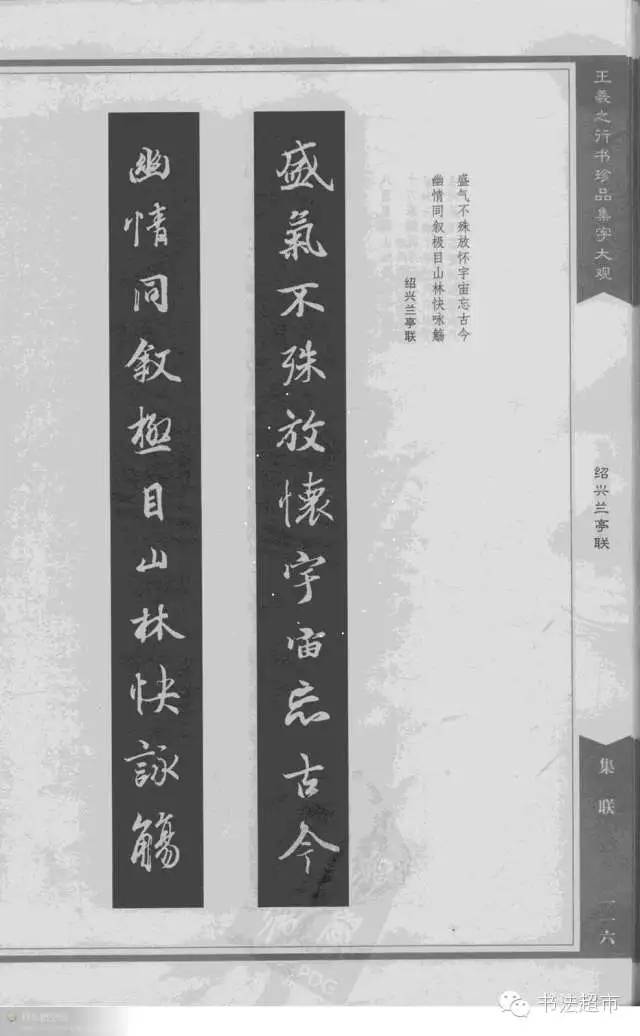 王羲之行书珍品集字大观
绍兴兰亭联
集联
一一六
盛气不殊放怀宇宙忘古今
幽情同叙极目山林快咏觞
绍兴兰亭联
盛氣不殊放懷宇宙忘古今
幽情同叙極目山林快詠觴
书法超市
PDG